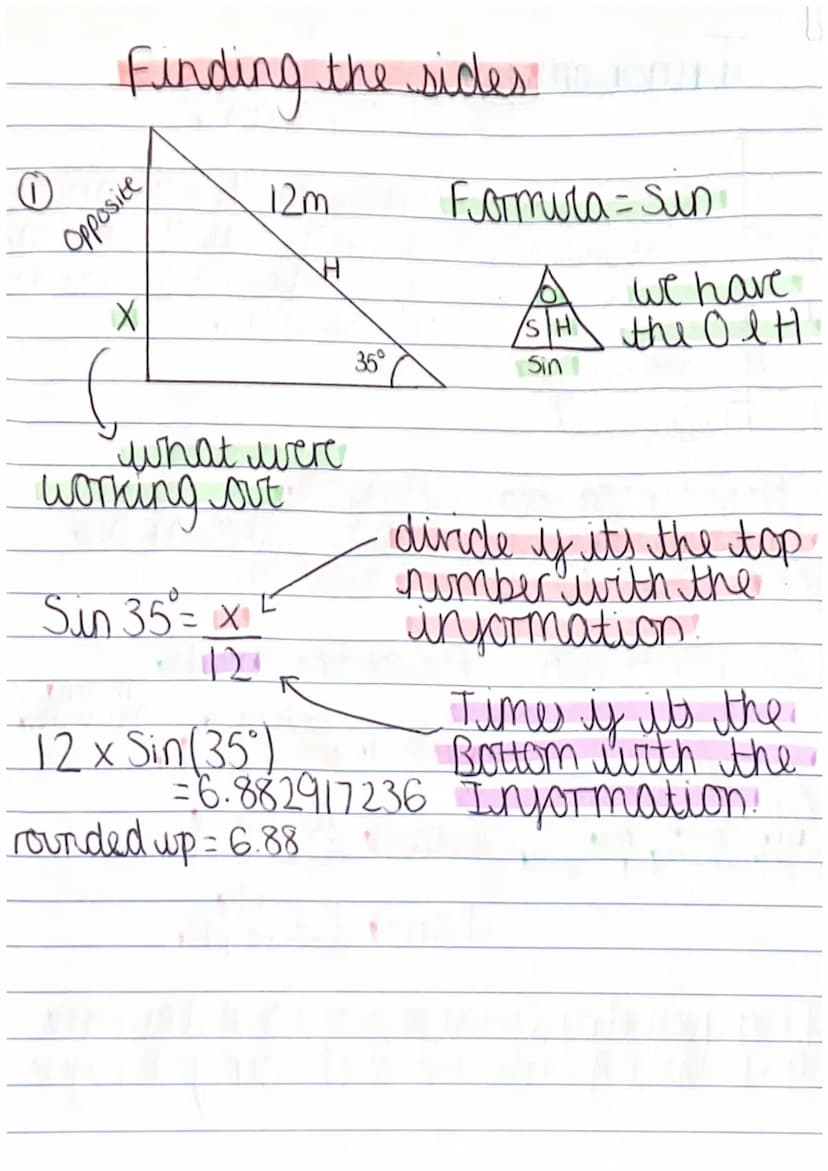 Finding the sides
①
opposite
12m
Formula = Sin
H
O
we have
X
S H
the O & H
35°
Sin
what were
working out
divide if its the top
number with the
Sin 35° = x
information.
12
Times if its the
12 x Sin(35°)
Bottom with the
= 6.882917236
Information!
rounded up = 6.88